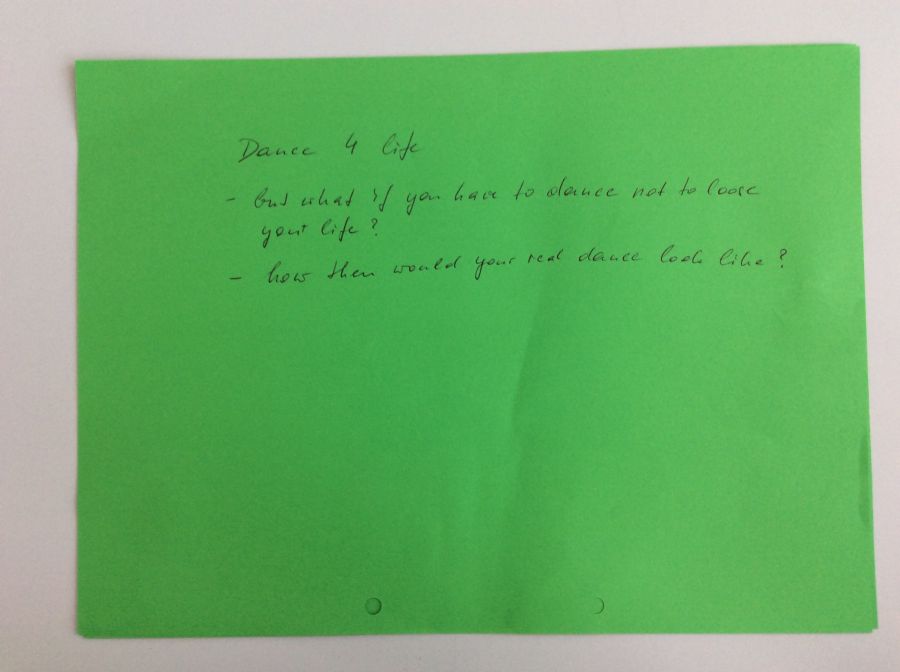 Dance 4 life
- but what if you have to dance not to loose
your life?
- how then would your real dance look like?